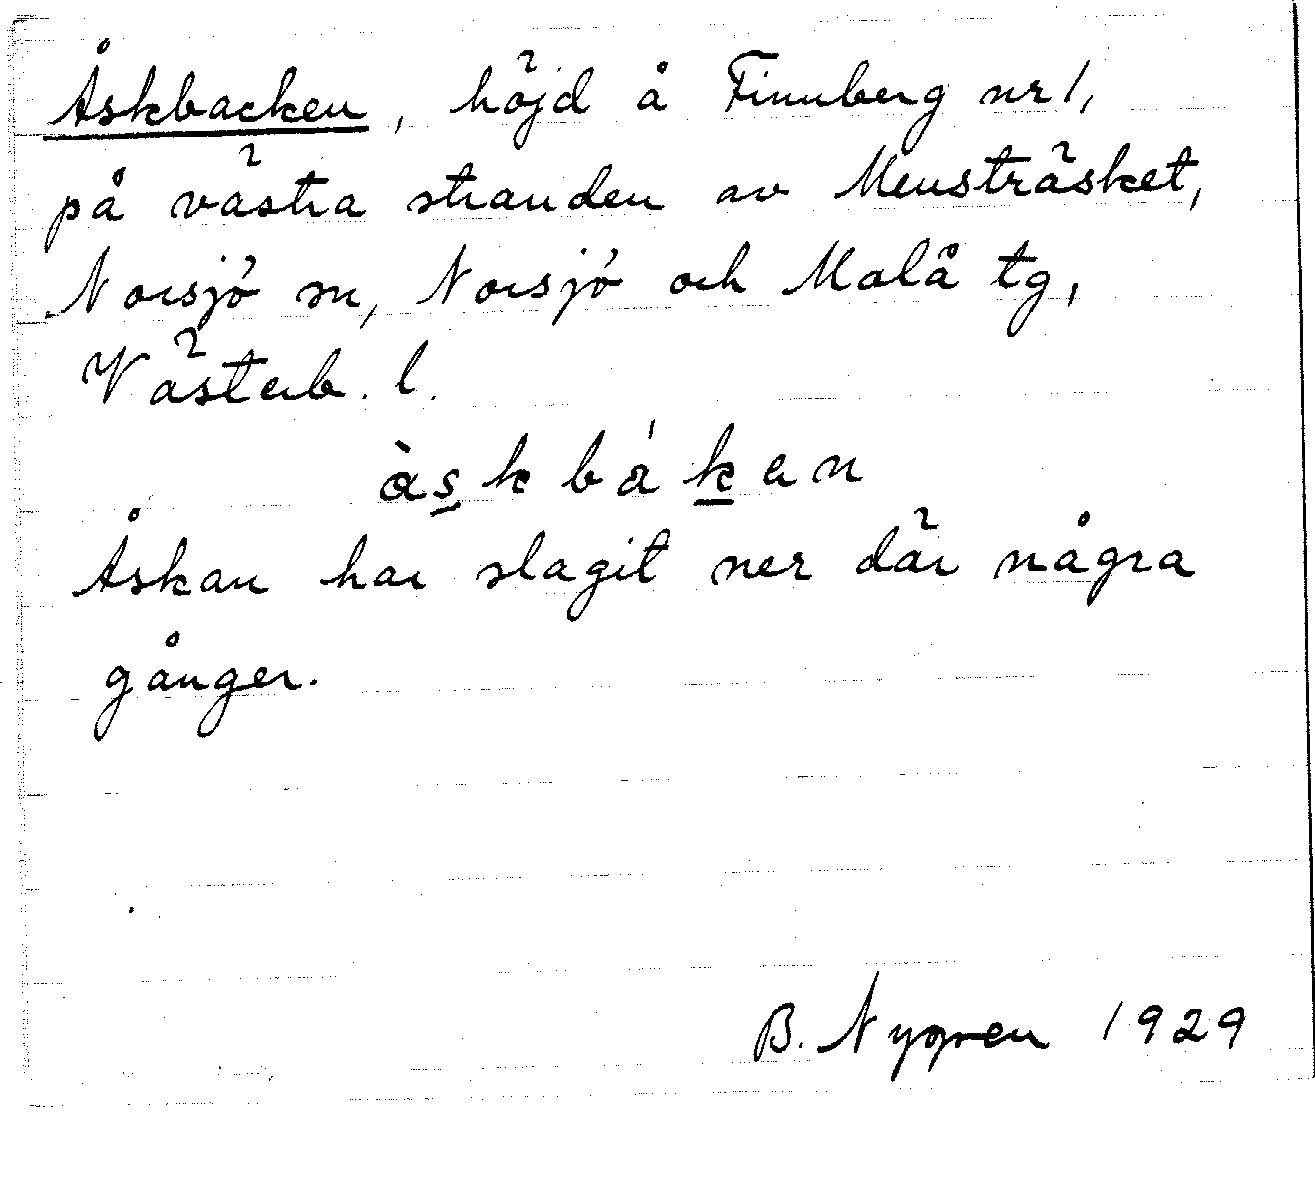 Åskbacken, höjd å Finnberg nr 1,
på västra stranden av Mensträsket,
Norsjö sn, Norsjö och Malå tg,
Västerb. l.
àskbákan
Åskan har slagit ner där några
gånger.
B. Nygren 1929